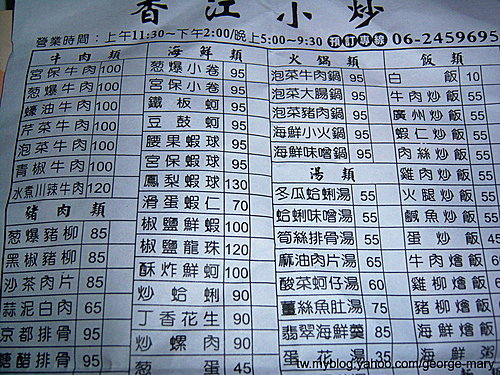 香江小炒
營業時間：上午11:30~下午2:00/晚上5:00~9:30 預訂專線 06-2459695
牛肉類
宮保牛肉 100
葱爆牛肉 100
蠔油牛肉 100
芹菜牛肉 100
泡菜牛肉 100
青椒牛肉 100
水煮川辣牛肉 120
豬肉類
葱爆豬柳 85
黑椒豬柳 85
沙茶肉片 85
蒜泥白肉 65
京都排骨 95
糖醋排骨 95
海鮮類
葱爆小卷 95
宮保小卷 95
鐵板蚵 95
豆鼓蚵 95
腰果蝦球 95
宮保蝦球 95
鳳梨蝦球 130
滑蛋蝦仁 70
椒鹽鮮蝦 100
椒鹽龍珠 120
酥炸鮮蚵 100
炒蛤蜊 90
丁香花生 90
炒螺肉 90
葱蛋 45
火鍋類
泡菜牛肉鍋 95
泡菜大腸鍋 95
泡菜豬肉鍋 95
海鮮小火鍋 95
海鮮味噌鍋 95
湯類
冬瓜蛤蜊湯 55
蛤蜊味噌湯 55
筍絲排骨湯 55
麻油肉片湯 65
酸菜蚵仔湯 60
薑絲魚肚湯 75
翡翠海鮮羹 85
蛋花湯 35
飯類
白飯 10
牛肉炒飯
廣州炒飯
蝦仁炒飯
肉絲炒飯
雞肉炒飯
火腿炒飯
鹹魚炒飯
蛋炒飯
牛肉燴飯
雞柳燴飯
豬柳燴飯
海鮮燴飯
海鮮粥
tw.myblog.yahoo.com/george-mary